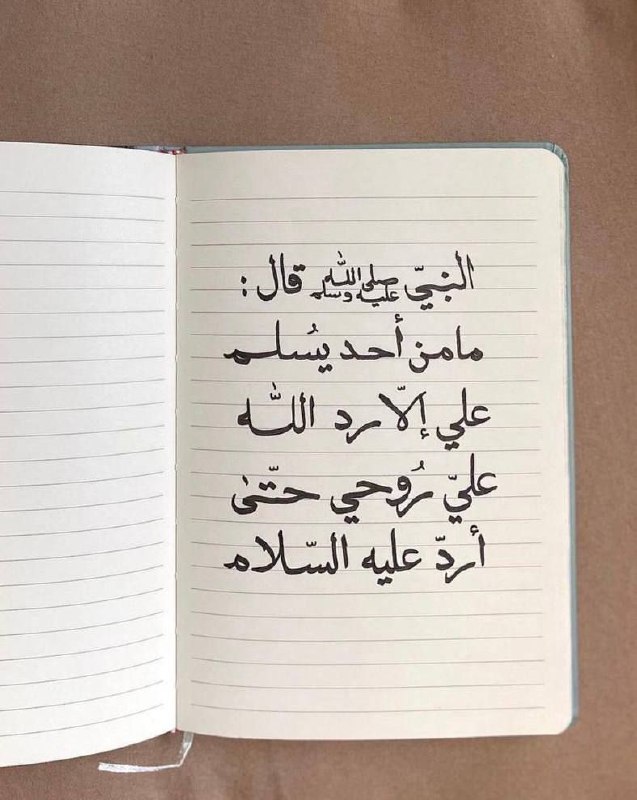 النبيّ صلى الله عليه وسلم قال :
مامن أحد يُسلم
علي إلّا رد اللّٰه
عليّ رُوحي حتّىٰ
أردّ عليه السّلام